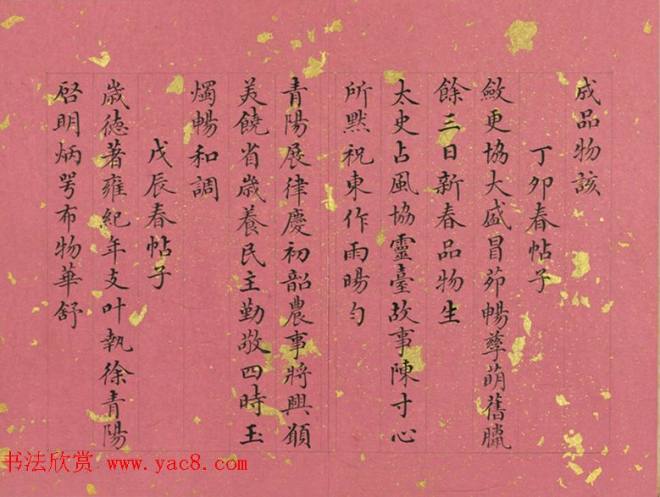 成品物該
丁卯春帖子
斂更協大盛冒茆暢孳萌舊臘
餘三日新春品物生
太史占風協靈臺故事陳寸心
所默祝東作雨暘勻
青陽展律慶初韶農事將興願
美饒省歲養民主勤敬四時玉
燭暢和調
戊辰春帖子
歲德著雍紀年支叶執徐青陽
啓明炳咢布物華舒
书法欣赏 www.yac8.com